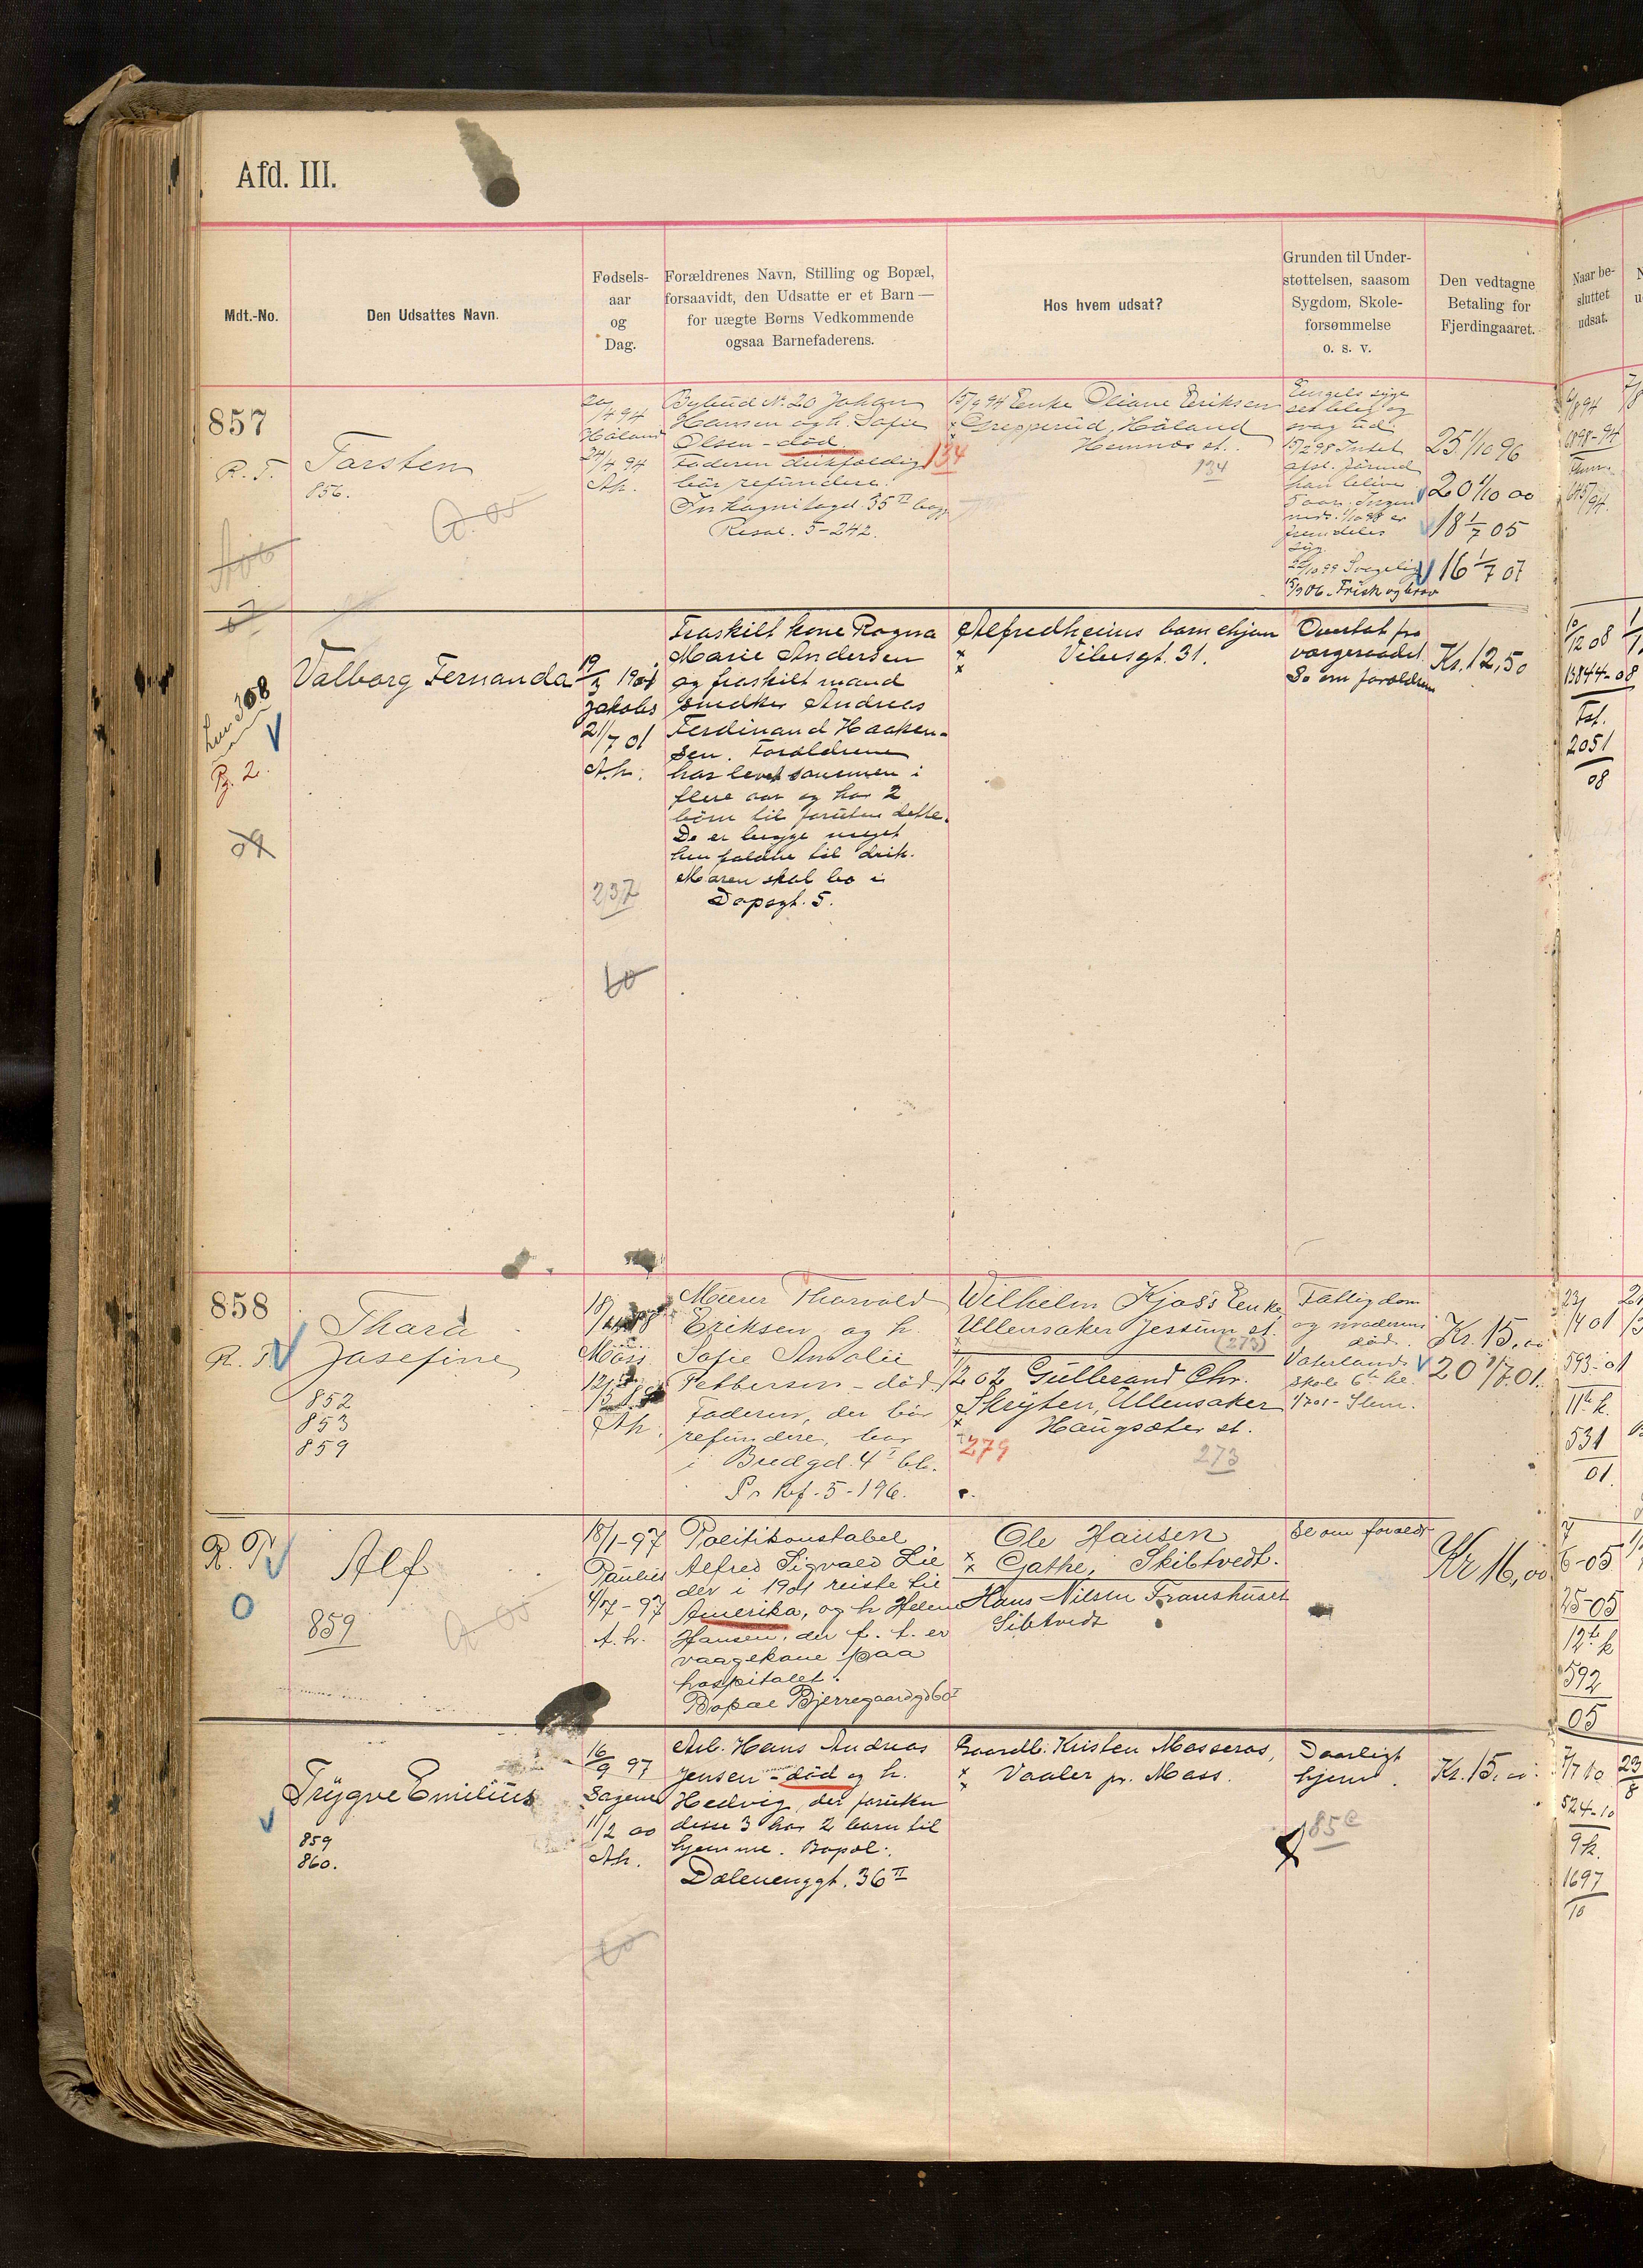 Afd. III.
Mdt.-No.
Den Udsattes Navn.
Fødsels-
aar
og
Dag.
Forældrenes Navn, Stilling og Bopæl,
forsaavidt, den Udsatte er et Barn —
for uægte Børns Vedkommende
ogsaa Barnefaderens.
Hos hvem udsat?
Grunden til Under-
støttelsen, saasom
Sygdom, Skole-
forsømmelse
o. s. v.
Den vedtagne
Betaling for
Fjerdingaaret.
Naar be-
sluttet
udsat.
857
R. T.
Torsten
856.
/4 94
Høland
24/4 94
Ah.
Bybud No. 20 Johan
Hansen og h. Sofie
Olsen - død.
Faderen drikfældig
bør refundere.
35 II
5-242.
134
15/9 94 Enke Oliane Eriksen
Grepperud, Høland
Hemnæs st.
134
Engels syge
ser bleg og
svag ud
fremdeles
syg.
Svagelig
15/9 06. Frisk og brav
25 1/10 96
20 1/10 00
18 1/7 05
16 1/7 07
/8 94
1898-94
Valborg Fernanda
Pg. 2.
19
/3 1901
Jakobs
21/7 01
A.h.
237
Fraskilt kone Ragna
Marie Andersen
og fraskilt mand
snedker Andreas
Ferdinand Haaken-
sen. Forældrene
har levet sammen i
flere aar og har 2
børn til foruten dette.
De er begge meget
hen faldne til drik.
Moren skal bo i
Dopsgt. 5.
Alfredheims barnehjem
Vibesgt. 31.
Overtat fra
vergeraadet
Se om forældrene
Kr. 12,50
10/12 08
13844-08
2051
08
858
R. T.
Thora
Josefine
852
853
859
Moss
Ah.
Murer Thorvald
Eriksen og h.
Sofie Amalie
Pettersen - død.
Faderen, der bør
refundere, bor
i Bredgd. 4 I bl.
Pr Ref. 5-196.
Wilhelm Kjos's Enke
Ullensaker Jessum st.
(273)
1/2 02 Gulbrand Chr.
Skryten, Ullensaker
Haugsæter st.
279
273
Fattigdom
og moderens
død.
Vaterlands
skole 6te kl.
Kr. 15,00
20 1/7 01.
/4 01
593-01
11te k.
531
01.
R. T.
O
Alf
859
18/1-97
Paulus
4/7-97
A. h.
Politikonstabel
Alfred Sigvald Lie
der i 1901 reiste til
Amerika, og h. Helene
Hansen, der f. t. er
vaagekone paa
hospitalet.
Bopæl Bjerregaardsgd 60 I
Ole Hansen
Gathe, Skibtvedt.
Hans Nilsen Franshuset
Sibtvedt
Se om forældr.
Kr 16,00
7/6-05
25-05
12te k
592
05
Trygve Emilius
859
860.
16
/9 97
Sagene
11/2 00
Ah.
Arb. Hans Andreas
Jensen - død og h.
Hedvig, der foruten
disse 3 har 2 barn til
hjemme. Bopæl:
Dælenenggt. 36 II
Gaardb. Kristen Mosseros,
Vaaler pr. Moss.
Daarligt
hjem.
85e
Kr. 15,00.
7/7 10
524-10
9 k.
1697
10
23
8